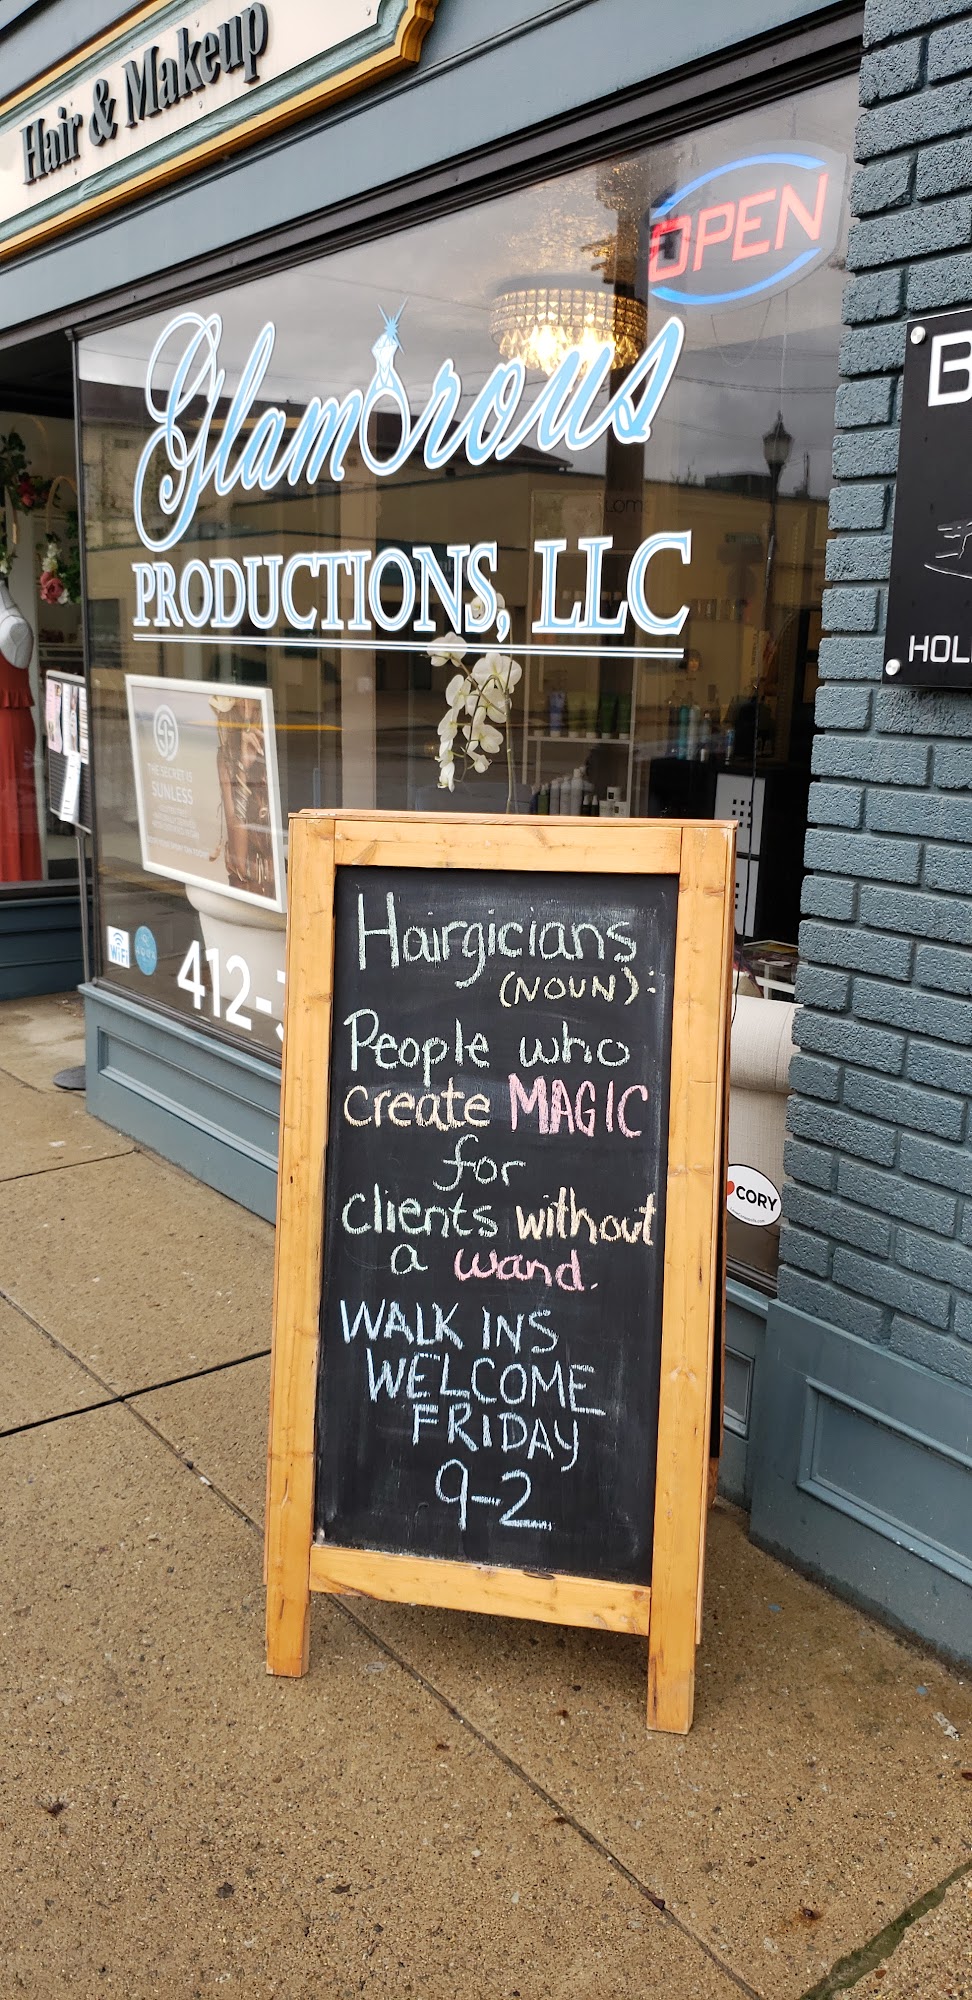 Hair & Makeup
OPEN
Glamorous
PRODUCTIONS, LLC
THE SECRET IS
SUNLESS
WiFi
412-3
B
HOL
CORY
Hairgicians
(NOUN):
People who
create MAGIC
for
clients without
a wand.
WALK INS
WELCOME
FRIDAY
9-2